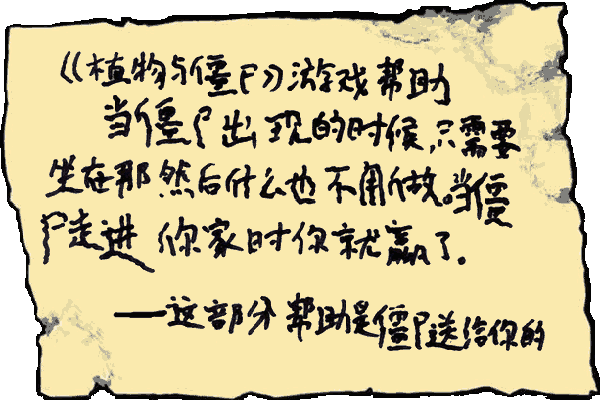 《植物与僵尸》游戏帮助
当僵尸出现的时候，只需要
坐在那然后什么也不用做。当僵
尸走进你家时你就赢了。
——这部分帮助是僵尸送给你的